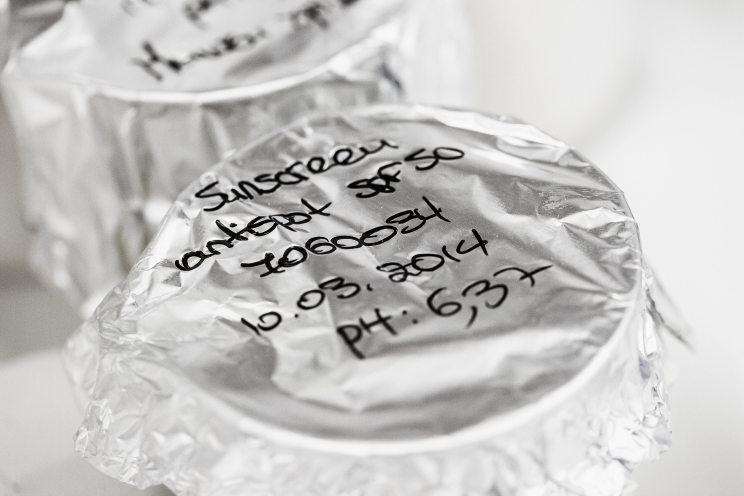 Sunscreen
antispot SPF 50
7060034
10.03.2014
pH: 6,37